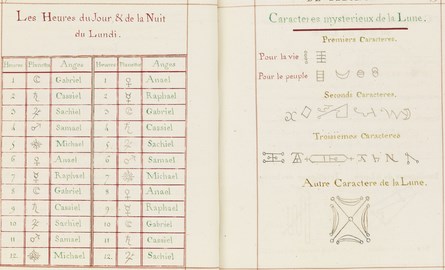 Les Heures du Jour & de la Nuit
du Lundi.
Heures Planettes Anges Heures Planettes Anges
1 ☾ Gabriel 1 ♀ Anael
2 ♄ Cassiel 2 ☿ Raphael
3 ♃ Sachiel 3 ☾ Gabriel
4 ♂ Samael 4 ♄ Cassiel
5 ☉ Michael 5 ♃ Sachiel
6 ♀ Anael 6 ♂ Samael
7 ☿ Raphael 7 ☉ Michael
8 ☾ Gabriel 8 ♀ Anael
9 ♄ Cassiel 9 ☿ Raphael
10 ♃ Sachiel 10 ☾ Gabriel
11 ♂ Samael 11 ♄ Cassiel
12. ☉ Michael 12. ♃ Sachiel
Caracteres mysterieux de la Lune.
Premiers Caracteres.
Pour la vie
Pour le peuple
Seconds Caracteres.
Troisiemes Caracteres
Autre Caractere de la Lune.